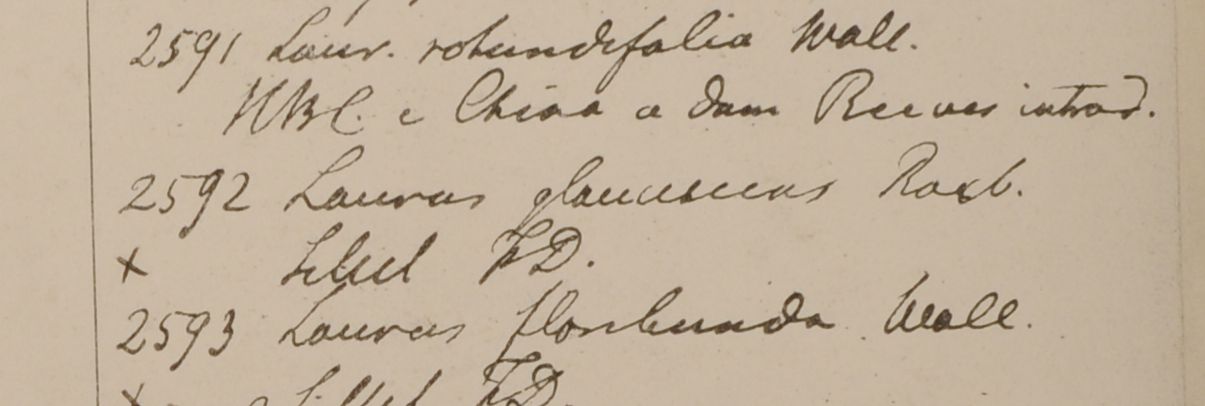 2591 Laur. rotundifolia Wall.
HBC. e China a dom Reeves introd.
2592 Laurus glaucescens Roxb.
+ Silhet FD.
2593 Laurus floribunda Wall.
+ Silhet FD.